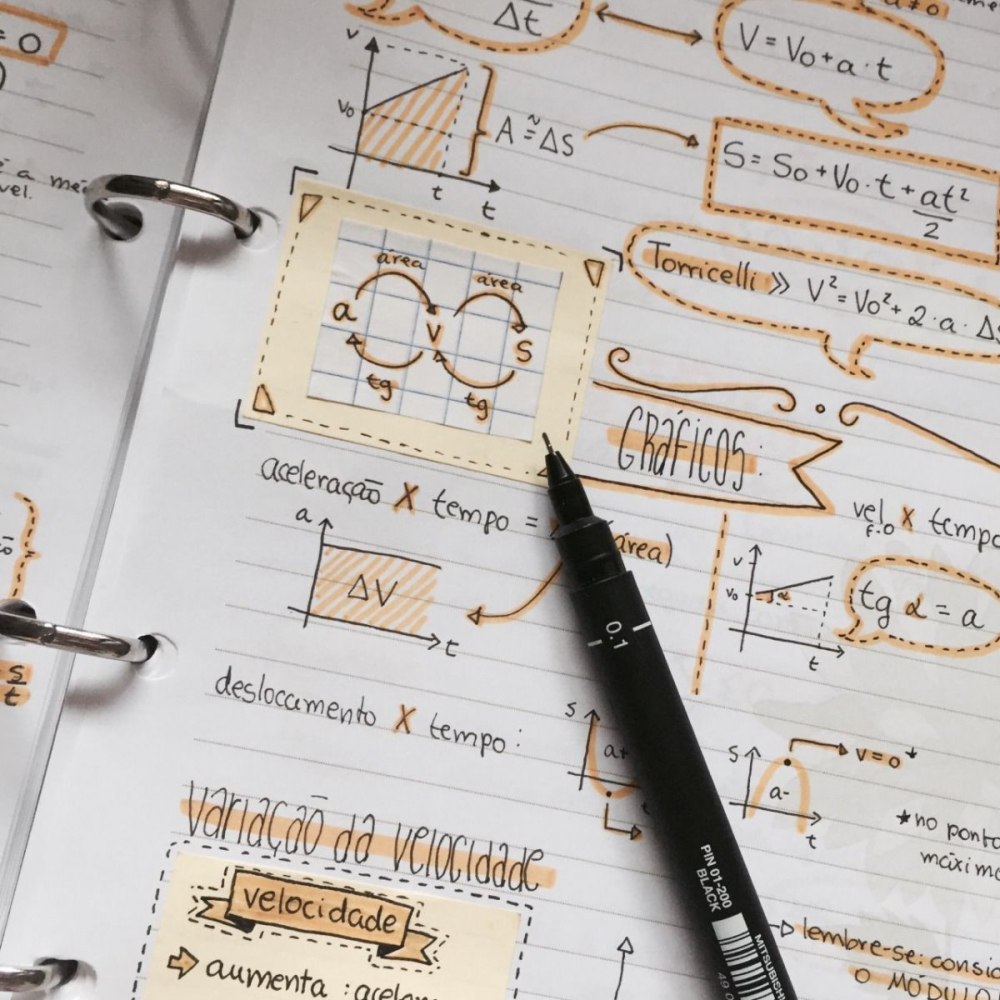 = 0
Δt
V = Vo + a · t
a ≠ 0
v
vo
t
t
A ≅ ΔS
S = So + Vo · t + at²
2
é a
vel.
Torricelli >> V² = Vo² + 2 · a · ΔS
área
área
a
v
s
tg
tg
Gráficos:
aceleração X tempo =
área)
a
ΔV
t
vel X tempo
v
vo
α
t
tg α = a
s
t
deslocamento X tempo:
s
a+
s
a-
t
v = 0 *
*no ponto
máximo
variação da velocidade
velocidade
aumenta :
lembre-se:
o MÓDULO
0.1
PIN 01-200
BLACK
MITSUBISHI